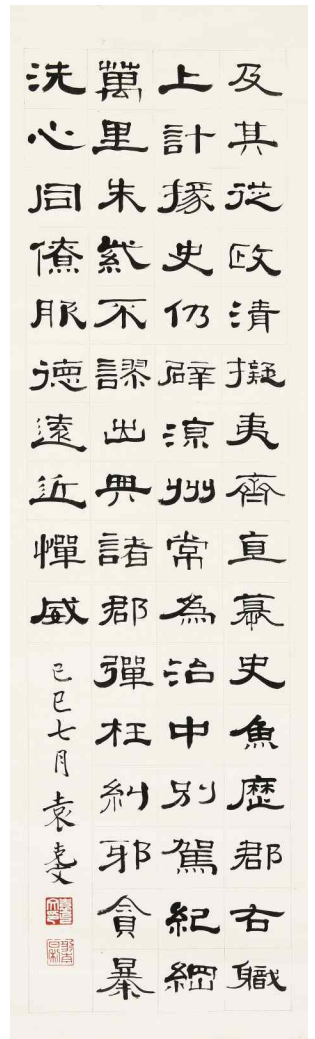 及其從政清擬夷齊直慕史魚歷郡右職
上計掾史仍辟涼州常為治中別駕紀綱
萬里朱紫不謬出典諸郡彈枉糾邪貪暴
洗心同僚服德遠近憚威
己巳七月袁克文